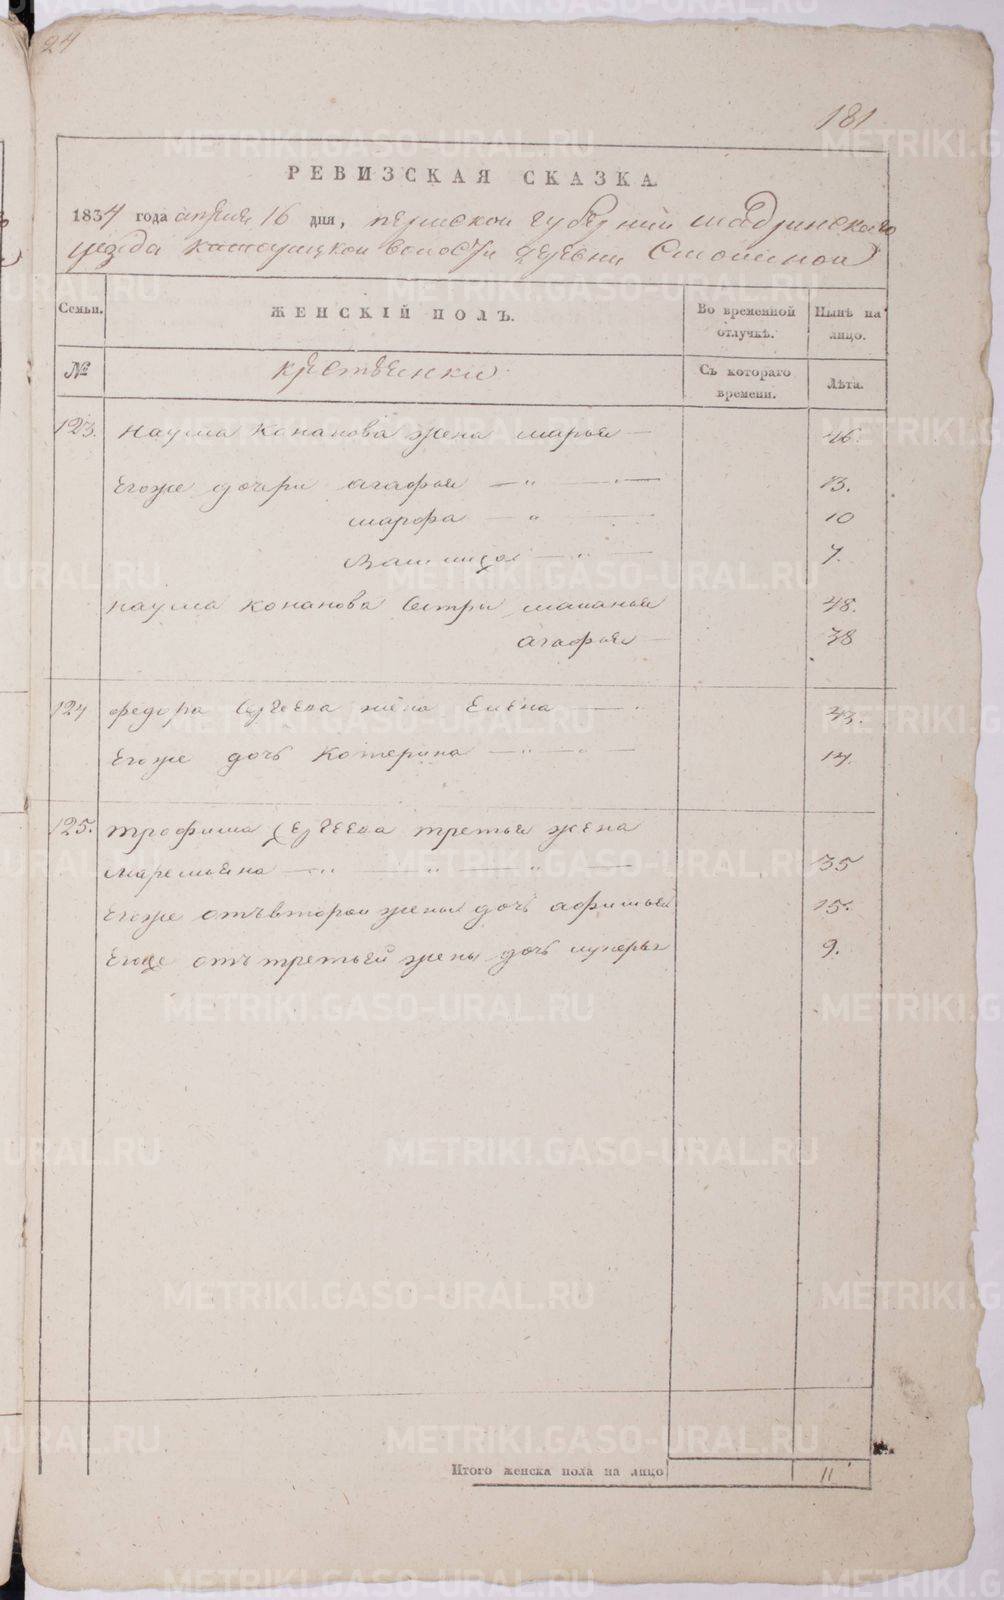 24
181
РЕВИЗСКАЯ СКАЗКА
1834 года апреля 16 дня, пермской губернии шадринского
уезда волости деревни
Семьи. ЖЕНСКІЙ ПОЛЪ. Во временной отлучкѣ. Нынѣ на лицо.
№ крестьянки Съ котораго времени. Лѣта.
123. наума конанова жена марья — 46.
Егоже дочери агафья — „ — „ — 13.
марфа — „ — 10
7.
наума конанова сестры маланья 48.
агафья — 38
124 федора сергеева жена Елена — . 43.
Егоже дочь катерина — „ — „ — 14.
125. трофима сергеева третья жена
маремьяна — „ — „ — „ — 35
Егоже отъ второй жены дочь афимья 15.
Егоже отъ третьей жены дочь лукерья 9.
Итого женска пола на лицо 11
METRIKI.GASO-URAL.RU